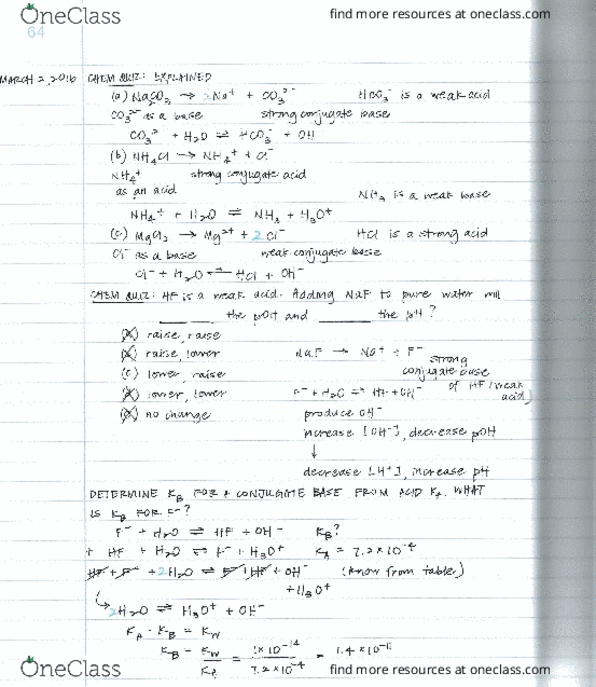 OneClass
find more resources at oneclass.com
64
MARCH 2, 2016 CHEM QUIZ: EXPLAINED
(a) Na₂CO₃ → 2Na⁺ + CO₃²⁻ HCO₃⁻ is a weak acid
CO₃²⁻ as a base strong conjugate base
CO₃²⁻ + H₂O ⇌ HCO₃⁻ + OH
(b) NH₄Cl → NH₄⁺ + Cl⁻
NH₄⁺ strong conjugate acid
as an acid NH₃ is a weak base
NH₄⁺ + H₂O ⇌ NH₃ + H₃O⁺
(c) MgCl₂ → Mg²⁺ + 2Cl⁻ HCl is a strong acid
Cl⁻ as a base weak conjugate base
Cl⁻ + H₂O ⇌ HCl + OH⁻
CHEM QUIZ: HF is a weak acid. Adding NaF to pure water will
______ the pOH and ______ the pH?
(A) raise, raise
(B) raise, lower NaF → Na⁺ + F⁻ strong
(c) lower, raise conjugate base
(D) lower, lower F⁻ + H₂O ⇌ HF + OH⁻ of HF (weak acid)
(E) no change produce OH⁻
increase [OH⁻], decrease pOH
↓
decrease [H⁺], increase pH
DETERMINE KB FOR A CONJUGATE BASE FROM ACID KA. WHAT
IS KB FOR F⁻?
F⁻ + H₂O ⇌ HF + OH⁻ KB?
+ HF + H₂O ⇌ F⁻ + H₃O⁺ KA = 7.2 × 10⁻⁴
HF + F⁻ + 2H₂O ⇌ F⁻ + HF + OH⁻ (know from table)
+ H₃O⁺
2H₂O ⇌ H₃O⁺ + OH⁻
KA · KB = KW
KB = KW/KA = 1×10⁻¹⁴/7.2×10⁻⁴ = 1.4×10⁻¹¹
OneClass
find more resources at oneclass.com